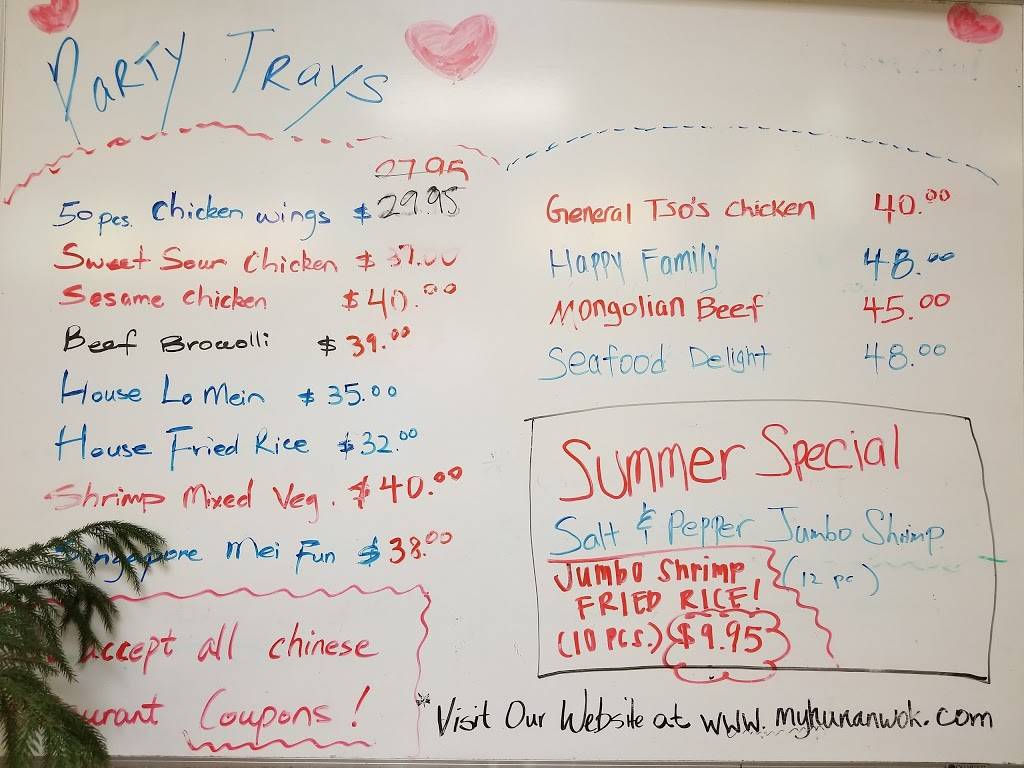 Party Trays
27.95
50 pcs. Chicken wings $ 29.95
Sweet Sour Chicken $ 37.00
Sesame chicken $ 40.00
Beef Brocolli $ 39.00
House Lo Mein $ 35.00
House Fried Rice $ 32.00
Shrimp Mixed Veg. $ 40.00
Mei Fun $ 38.00
accept all chinese
Coupons!
General Tso's chicken 40.00
Happy Family 48.00
Mongolian Beef 45.00
Seafood Delight 48.00
Summer Special
Salt & Pepper Jumbo Shrimp
(12 pc)
Jumbo Shrimp
FRIED RICE!
(10 PCS.) $9.95
Visit Our Website at www.myhunanwok.com